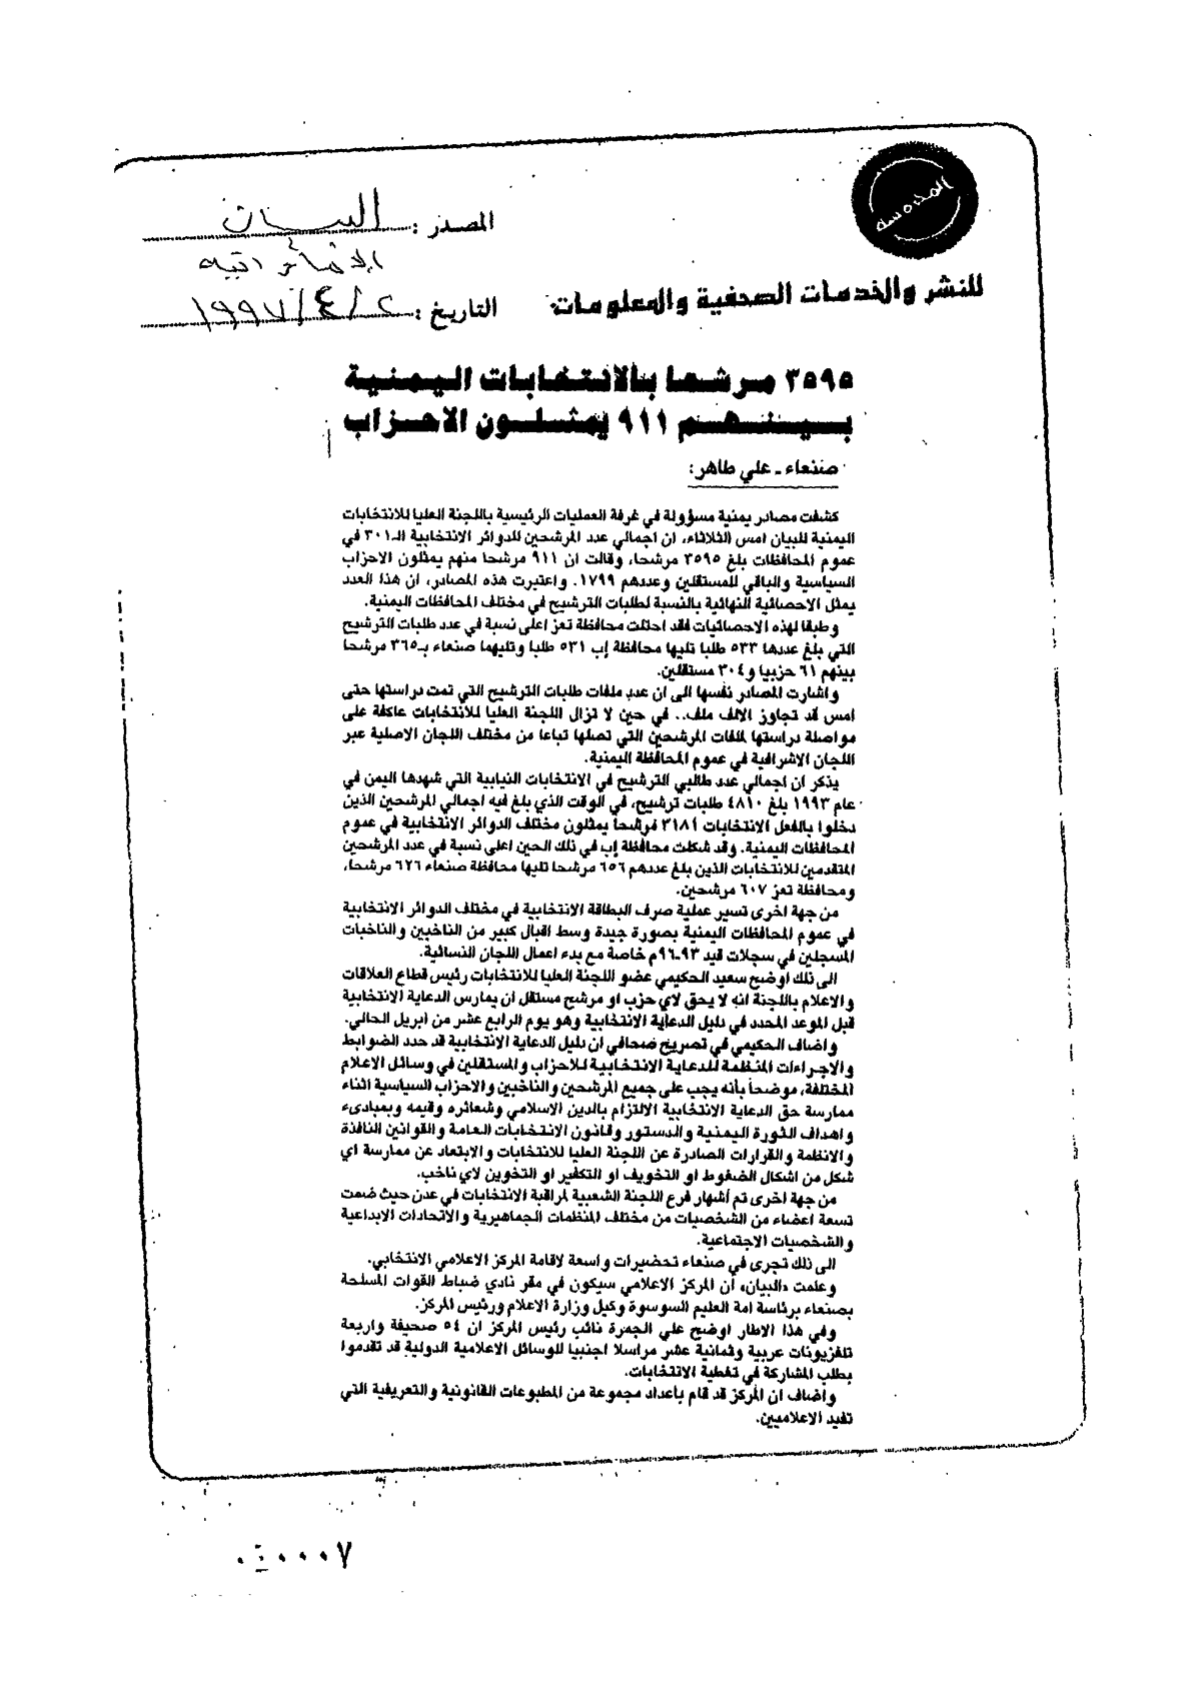 المدرسة
المصدر : البيان
الإماراتية
للنشر والخدمات الصحفية والمعلومات
التاريخ : ٢ / ٤ / ١٩٩٧
٣٥٩٥ مرشحا بالانتخابات اليمنية
بينهم ٩١١ يمثلون الاحزاب
صنعاء ـ علي طاهر:
كشفت مصادر يمنية مسؤولة في غرفة العمليات الرئيسية باللجنة العليا للانتخابات
اليمنية للبيان امس الثلاثاء، ان اجمالي عدد المرشحين للدوائر الانتخابية الـ٣٠١ في
عموم المحافظات بلغ ٣٥٩٥ مرشحا، وقالت ان ٩١١ مرشحا منهم يمثلون الاحزاب
السياسية والباقي للمستقلين وعددهم ١٧٩٩. واعتبرت هذه المصادر، ان هذا العدد
يمثل الاحصائية النهائية بالنسبة لطلبات الترشيح في مختلف المحافظات اليمنية.
وطبقا لهذه الاحصائيات فقد احتلت محافظة تعز اعلى نسبة في عدد طلبات الترشيح
التي بلغ عددها ٥٣٣ طلبا تليها محافظة إب ٥٣١ طلبا وتليهما صنعاء بـ٣٦٥ مرشحا
بينهم ٦١ حزبيا و٣٠٤ مستقلين.
واشارت المصادر نفسها الى ان عدد ملفات طلبات الترشيح التي تمت دراستها حتى
امس قد تجاوز الالف ملف.. في حين لا تزال اللجنة العليا للانتخابات عاكفة على
مواصلة دراستها لملفات المرشحين التي تصلها تباعا من مختلف اللجان الاصلية عبر
اللجان الاشرافية في عموم المحافظة اليمنية.
يذكر ان اجمالي عدد طالبي الترشيح في الانتخابات النيابية التي شهدها اليمن في
عام ١٩٩٣ بلغ ٤٨١٠ طلبات ترشيح، في الوقت الذي بلغ فيه اجمالي المرشحين الذين
دخلوا بالفعل الانتخابات ٣١٨١ مرشحاً يمثلون مختلف الدوائر الانتخابية في عموم
المحافظات اليمنية. وقد شكلت محافظة إب في ذلك الحين اعلى نسبة في عدد المرشحين
المتقدمين للانتخابات الذين بلغ عددهم ٦٥٦ مرشحا تليها محافظة صنعاء ٦٢٦ مرشحا،
ومحافظة تعز ٦٠٧ مرشحين.
من جهة اخرى تسير عملية صرف البطاقة الانتخابية في مختلف الدوائر الانتخابية
في عموم المحافظات اليمنية بصورة جيدة وسط اقبال كبير من الناخبين والناخبات
المسجلين في سجلات قيد ٩٣ـ٩٦م خاصة مع بدء اعمال اللجان النسائية.
الى ذلك اوضح سعيد الحكيمي عضو اللجنة العليا للانتخابات رئيس قطاع العلاقات
والاعلام باللجنة انه لا يحق لاي حزب او مرشح مستقل ان يمارس الدعاية الانتخابية
قبل الموعد المحدد في دليل الدعاية الانتخابية وهو يوم الرابع عشر من ابريل الحالي.
واضاف الحكيمي في تصريح صحافي ان دليل الدعاية الانتخابية قد حدد الضوابط
والاجراءات المنظمة للدعاية الانتخابية للاحزاب والمستقلين في وسائل الاعلام
المختلفة، موضحاً بأنه يجب على جميع المرشحين والناخبين والاحزاب السياسية اثناء
ممارسة حق الدعاية الانتخابية الالتزام بالدين الاسلامي وشعائره وقيمه وبمبادىء
واهداف الثورة اليمنية والدستور وقانون الانتخابات العامة والقوانين النافذة
والانظمة والقرارات الصادرة عن اللجنة العليا للانتخابات والابتعاد عن ممارسة اي
شكل من اشكال الضغوط او التخويف او التكفير او التخوين لاي ناخب.
من جهة اخرى تم أشهار فرع اللجنة الشعبية لمراقبة الانتخابات في عدن حيث ضمت
تسعة اعضاء من الشخصيات من مختلف المنظمات الجماهيرية والاتحادات الابداعية
والشخصيات الاجتماعية.
الى ذلك تجرى في صنعاء تحضيرات واسعة لاقامة المركز الاعلامي الانتخابي.
وعلمت «البيان» ان المركز الاعلامي سيكون في مقر نادي ضباط القوات المسلحة
بصنعاء برئاسة امة العليم السوسوة وكيل وزارة الاعلام ورئيس المركز.
وفي هذا الاطار اوضح علي الجمرة نائب رئيس المركز ان ٥٤ صحيفة واربعة
تلفزيونات عربية وثمانية عشر مراسلا اجنبيا للوسائل الاعلامية الدولية قد تقدموا
بطلب المشاركة في تغطية الانتخابات.
واضاف ان المركز قد قام باعداد مجموعة من المطبوعات القانونية والتعريفية التي
تفيد الاعلاميين.